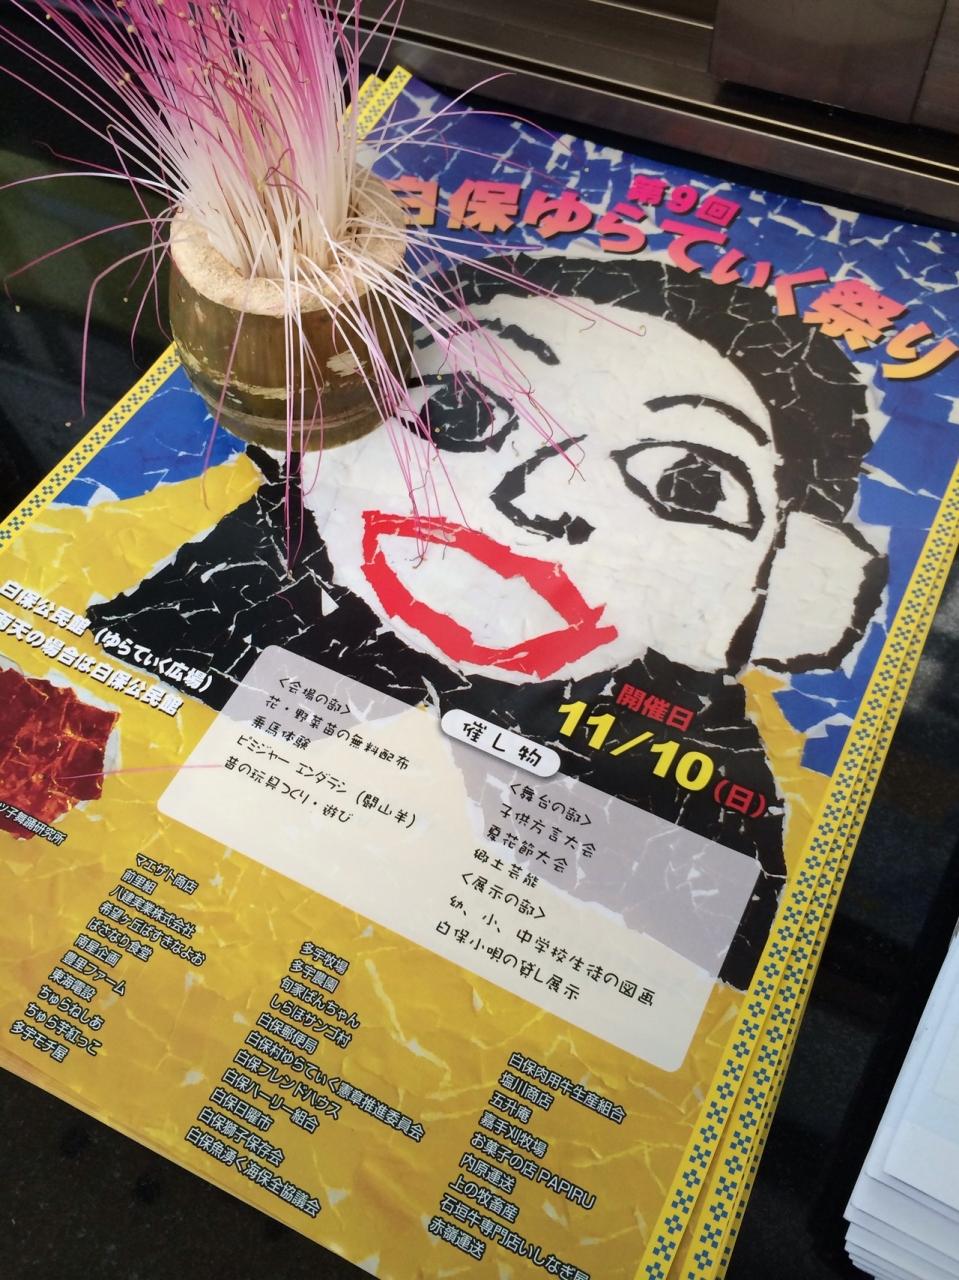 第9回
白保ゆらてぃく祭り
白保公民館（ゆらてぃく広場）
雨天の場合は白保公民館
開催日
11/10（日）
催し物
<会場の部>
花・野菜苗の無料配布
乗馬体験
ピミジャー エンダラシ（闘山羊）
昔の玩具つくり・遊び
<舞台の部>
子供方言大会
夏花節大会
郷土芸能
<展示の部>
幼、小、中学校生徒の図画
白保小唄の貸し展示
ツ子舞踊研究所
マエザト商店
前里組
八建実業株式会社
希望ヶ丘ぱすきなよお
ぱさなり食堂
南星企画
豊里ファーム
東海電設
ちゅらねしあ
ちゅら芋紅っこ
多宇モチ屋
多宇牧場
多宇農園
旬家ばんちゃん
しらほサンゴ村
白保郵便局
白保村ゆらてぃく憲章推進委員会
白保フレンドハウス
白保ハーリー組合
白保日曜市
白保獅子保存会
白保魚湧く海保全協議会
白保肉用牛生産組合
塩川商店
五升庵
嘉手刈牧場
お菓子の店PAPIRU
内原運送
上の牧畜産
石垣牛専門店いしなぎ屋
赤嶺運送